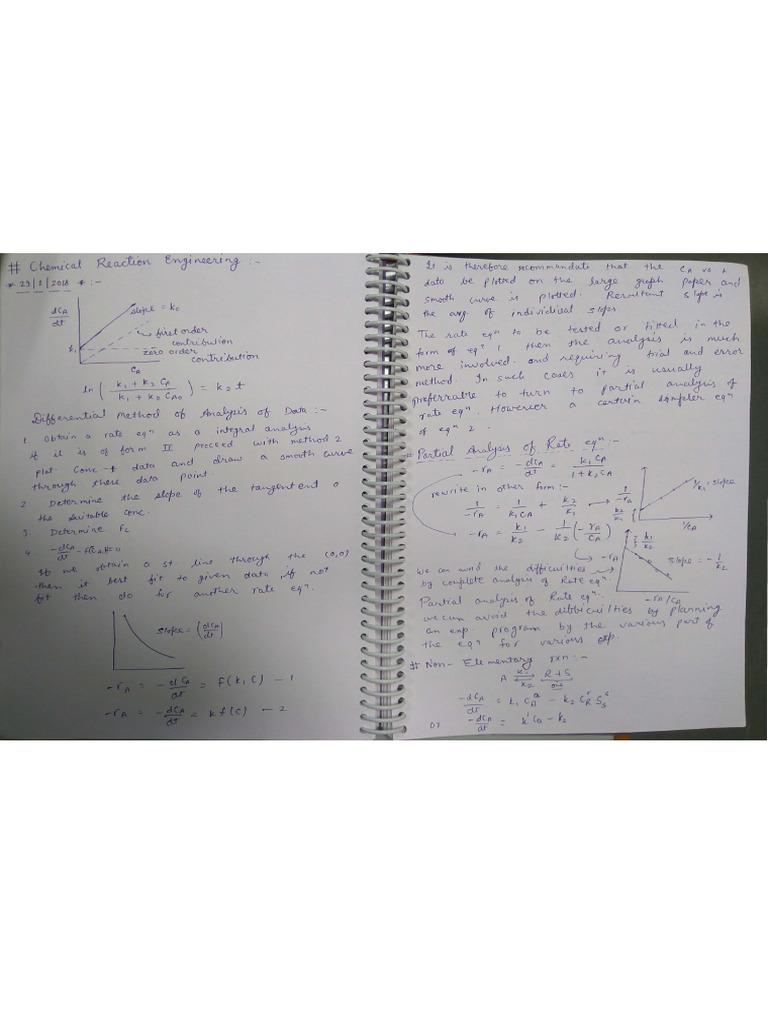 # Chemical Reaction Engineering :-
* 29/1/2018 * :-
dCA/dt
slope = k2
first order
contribution
k1
zero order
contribution
CA
ln ( k1 + k2 CA / k1 + k2 CA0 ) = k2 t
Differential Method of Analysis of Data :-
1. Obtain a rate eqn as a integral analysis
if it is of form II proceed with method 2
plot Conc-t data and draw a smooth curve
through these data point.
2. Determine the slope of the tangent end o
the suitable conc.
3. Determine
4. -dCA/dt
If we obtain a st line through the (0,0)
then it best fit to given data if not
fit then do for another rate eqn.
slope = (dCA/dt)
-rA = -dCA/dt = f(k, C) — 1
-rA = -dCA/dt = k f(C) — 2
It is therefore recommendate that the CA vs t
data be plotted on the large graph paper and
smooth curve is plotted. Resultant slope is
the avg of individical slope
The rate eqn to be tested or fitted in the
form of eqn 1 then the analysis is much
more involved. and requiring trial and error
method. In such cases it is usually
preferrable to turn to partial analysis of
rate eqn. However a certain simpler eqn
of eqn 2.
# Partial Analysis of Rate eqn :-
-rA = -dCA/dt = k1 CA / 1 + k2 CA
rewrite in other form :-
1/-rA = 1/k1CA + k2/k1
1/-rA
1/k1 = slope
k2/k1
1/CA
-rA = k1/k2 - 1/k2 (-rA/CA)
-rA
k1/k2
slope = -1/k2
-rA/CA
We can avoid the difficulties
by complete analysis of Rate eqn.
Partial analysis of Rate eqn.
we can avoid the difficulties by planning
an exp. program by the various part of
the eqn for various exp.
# Non- Elementary rxn :-
A k1 ⇌ k2 R + S
-dCA/dt = k1 CA^a - k2 CR^r SS^s
-dCA/dt =